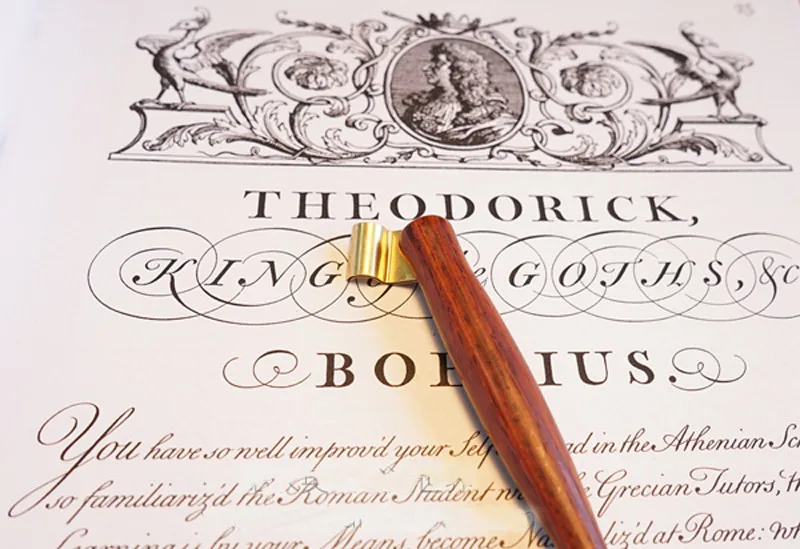 THEODORICK,
KING GOTHS, &c
BO IUS.
You have so well improv'd your Self ad in the Athenian Sc
so familiariz'd the Roman Student w Grecian Tutors, th
Learning is by your Means become Na liz'd at Rome: Wh